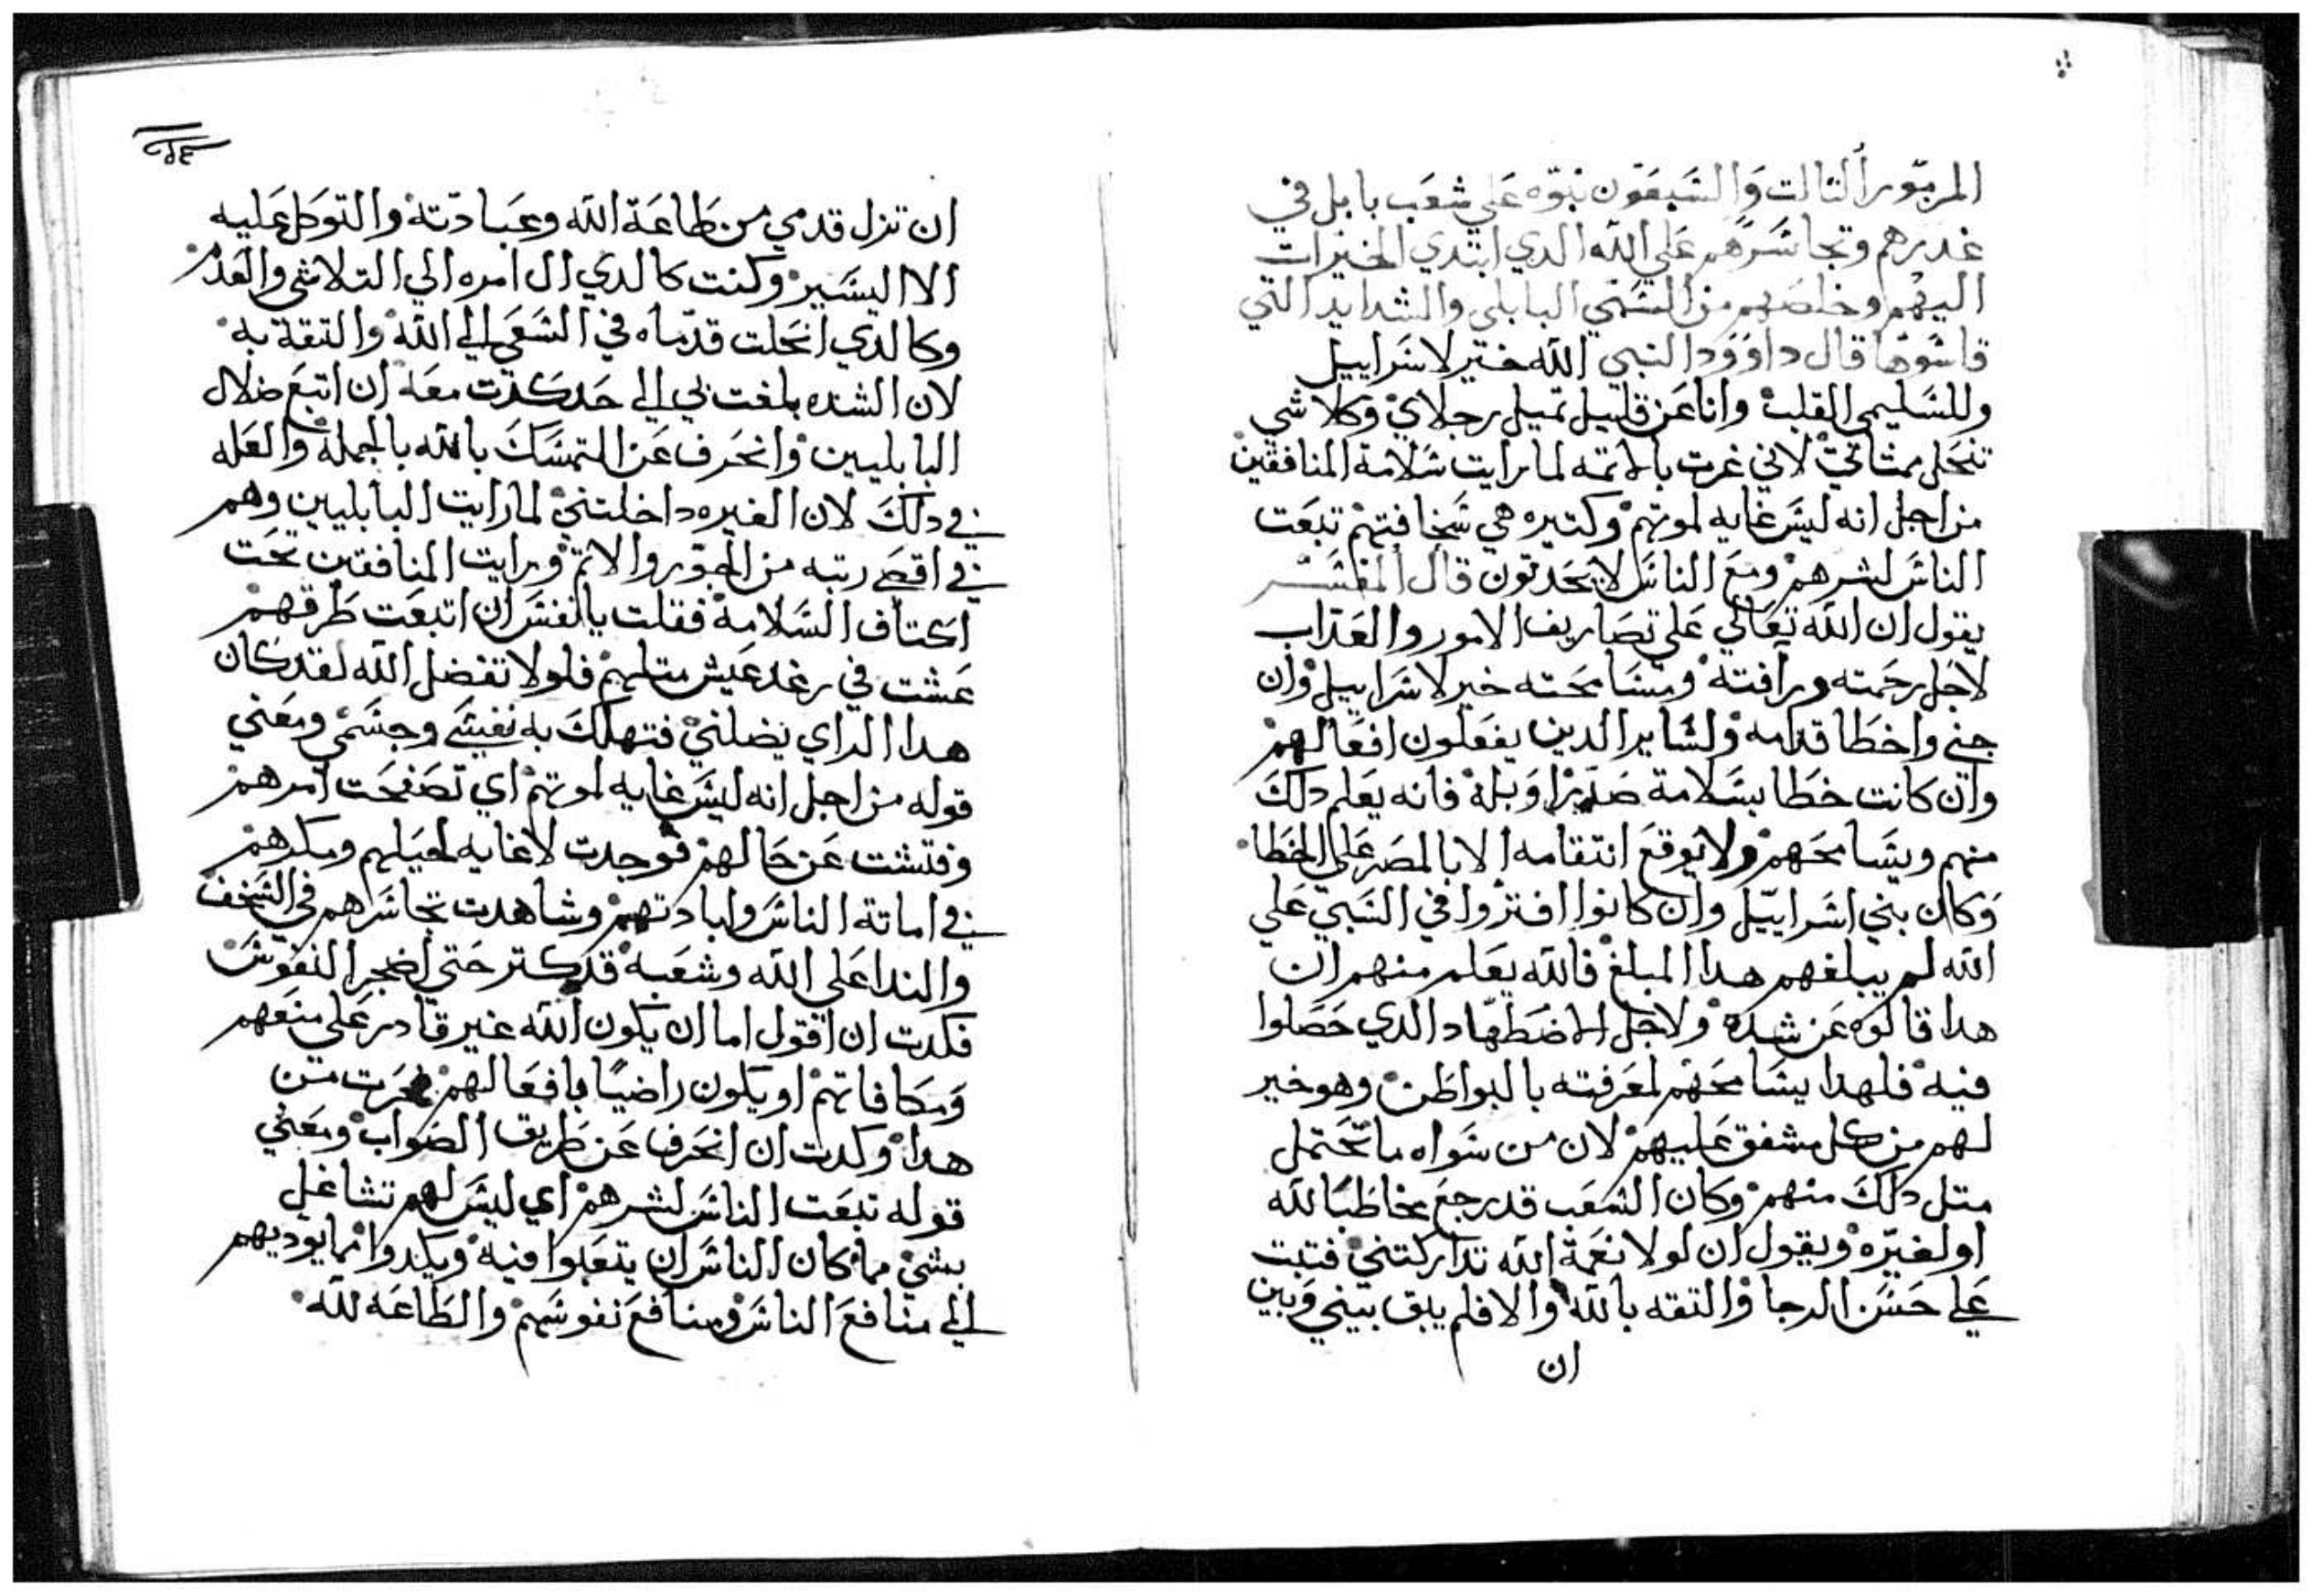 المزمور التالت والسبعون نبوه علي شعب بابل في
غدرهم وتجاسرهم علي الله الدي ابتدي الخيرات
اليهم وخلصهم من السبي البابلي والشدايد التي
قاسوها قال داوود النبي الله خير لاسراييل
وللسليمي القلب وانا عن قليل تميل رجلاي وكلا شي
تنحل ممشاتي لاني غرت بالاتمه لما رايت سلامة المنافقين
من اجل انه ليس غايه لموتهم وكتيره هي سخافتهم تبعت
الناس لشرهم ومع الناس لا يحدتون قال المفسر
يقول ان الله تعالي علي تصاريف الامور والعداب
لاجل رحمته ورآفته ومسامحته خير لاسراييل وان
جني واخطا قدامه ولساير الدين يفعلون افعالهم
وان كانت خطا بسلامة صدر وبله فانه يعلم دلك
منهم ويسامحهم ولا يوقع انتقامه الا بالمصر علي الخطا
وكان بني اسراييل وان كانوا افتروا في السبي علي
الله لم يبلغهم هدا المبلغ فالله يعلم منهم ان
هدا قالوه عن شده ولاجل الاضطهاد الدي حصلوا
فيه فلهدا يسامحهم لمعرفته بالبواطن وهو خير
لهم من كل مشفق عليهم لان من سواه ما تحتمل
متل دلك منهم وكان الشعب قد رجع مخاطبا لله
او لغيره ويقول ان لولا نعمة الله تداركتني فتبت
علي حسن الرجا والتقه بالله والا فلم يبق بيني وبين
ان
ان تزل قدمي من طاعة الله وعبادته والتوكل عليه
الا اليسير وكنت كالدي ال امره الي التلاشي والعدم
وكالدي انحلت قدماه في السعي الي الله والتقة به
لان الشده بلغت بي الي حد كدت معه ان اتبع ضلال
البابليين وانحرف عن التمسك بالله بالجمله والعله
في دلك لان الغيره داخلتني لما رايت البابليين وهم
في اقصي رتبه من الجور والاتم ورايت المنافقين تحت
اكتاف السلامه فقلت يا نفس ان اتبعت طرقهم
عشت في رغد عيش متلهم فلولا تفضل الله لقد كان
هدا الراي يضلني فتهلك به نفسي وجسمي ومعني
قوله من اجل انه ليس غايه لموتهم اي تصفحت امرهم
وفتشت عن حالهم فوجدت لا غايه لحيلهم ومكرهم
في اماتة الناس وابادتهم وشاهدت تجاسرهم في السخف
والندا علي الله وشعبه قد كتر حتي اضجر النفوس
فكدت ان اقول اما ان يكون الله غير قادر علي منعهم
ومكافاتهم او يكون راضيا بافعالهم فحرت من
هدا وكدت ان انحرف عن طريق الصواب ومعني
قوله تبعت الناس لشرهم اي ليس لهم تشاغل
بشي مما كان الناس ان يتعبوا فيه ويكدوا مما يوديهم
الي منافع الناس ومنافع نفوسهم والطاعه لله